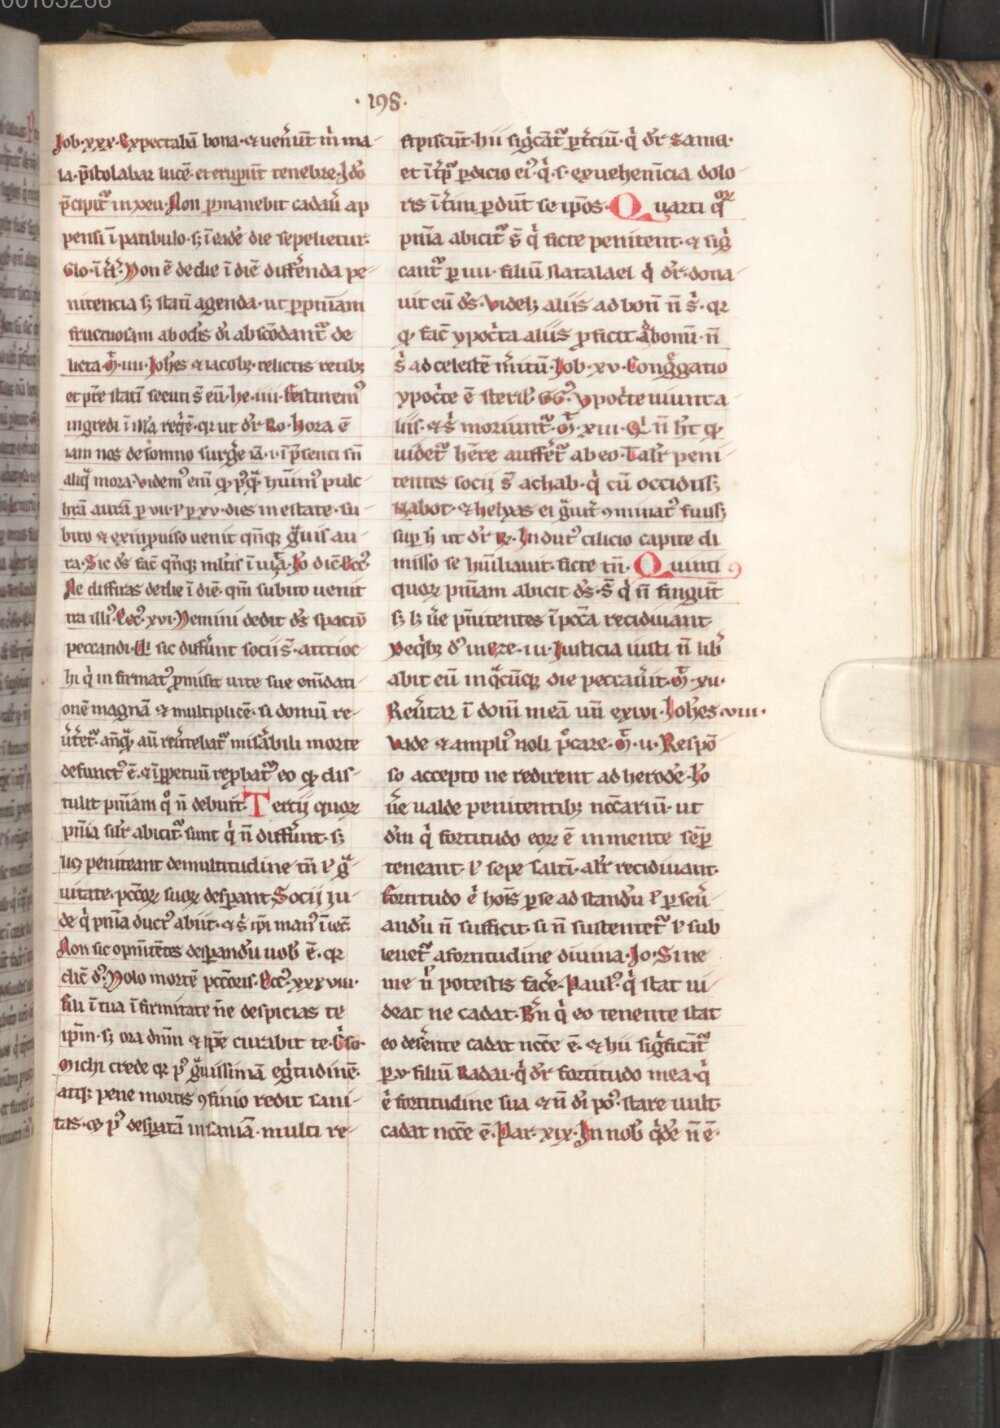 00103266
·198·
Job·xxx·Expectabā bona·et uen̄unt m̄ ma-
la·p̄stolabar lucē·et erupūt tenebre·Jdō
p̄cipit᷑ in xxu·Non p̄manebit cadau̅ ap
pensū ī patibulo·sꝫ ī eadē die sepelietur·
Glo·ī tr̄·Non ē de die ī diē differ̄enda pe-
nitencia sꝫ statī agenda·ut p̄ pn̄iam
fructuosam ab oc̄lis dī abscōdant᷑ de
licta·M̄·iiii·Joh̄es et iacobꝫ·relictis retibꝫ
et pr̄e statī secuti s̄ eū·he·iiii·festinemꝰ
ingredi ī illā req̄ē·qr ut dr̄·Ro·hora ē
iam nos de somno surḡe
aliq̄ mora·Videmꝰ eni̅ qꝫ
hrā aurā ꝑ vii·ł ꝑ xv·dies in estate·su-
bito et ex improuiso uenit q̄nqꝫ g̅uis au-
ra·Sic dꝰs facͥ q̄nqꝫ ml̄tis ī uit̄a·Jō dic̄
Ne differas de die ī diē·qm̄ subito uenit
ira illiꝰ·Eccꝰ·xvi·Nemini dedit dꝰs spaciū
peccandi·Q̄ sic differ̄unt socii s̄·antioc-
hi q̄ in firmat᷑ p̄misit uite sue em̄dati
onē magnā et multiplicē·si domū re-
u̅tet᷑·anq̄ aū reu̅tebat᷑ mis̄abili morte
defunctꝰ ē·et ī ppetuū repbatꝰ eo qꝫ dis-
tulit pn̄iam q̊ n̄ debuit·Tertii quoꝝ
pn̄ia silr̄ abicit᷑ sunt q̄ n̄ differ̄unt·sꝫ
peniteant de multitudine tn̄ ł g̅-
uitate·pcc̄oꝝ suoꝝ desp̄ant·Socii iu-
de q̄ pn̄ia ductꝰ abiit·et s̄
Non sic opn̄itētes desp̄andū uob̄ ē·qr
dic̄ dꝰ·Nolo mortē pccōris·Eccꝰ·xxxviii·
fili ī tua ī firmitate n̄e despicias te
ip̄m·sꝫ ora dn̄m et ip̄e curabit te·
Michi crede qr pꝰ g̅uissimā eg̅tudinē·
atqꝫ pene mortis ꝯfinio redit sani-
tas·et pꝰ desp̄atā insaniā·multi re-
sipiscūt·hii sigͥcāt᷑ ꝑ t̄ciū·q̄ dr̄ Sama·
et ī tp̄r ꝑdicio eiꝰ·q̄·s·ex uehem̄cia dolo-
ris ī tim ꝑdūt se ip̄os·Quarti qꝝ
pn̄ia abicit᷑ s̄ q̄ ficte penitent·et sig̅
cant᷑ ꝑ iiii·filiū Natalael q̄ dr̄·dona-
uit eū dꝰs·Videlꝫ aliis ad bonū n̄ s̄·qr
qꝫ facͥ ypoc̄ta aliis proficit ad bonū·n̄
s̄ ad celestē m̄itū·Job·xv·Congͣgatio
ypoc̄te ē steril̄·GGꝰ·Ypoc̄te uiuunt a-
liis·et s̄ moriunt᷑·M̄·xiii·Q̄ n̄ h̄t qꝫ
uidet᷑ hēre auffer̄t᷑ ab eo·Tal̄r peni-
tentes socii s̄ achab·q̄ cū occidiss
Nabot·et helyas ei g̅uit̄ ꝯminat᷑ fuiss
suꝑ h̄ ut dr̄·R̄·Indutꝰ cilicio capite di
misso se hu̅iliauit·ficte tn̄·Quinti
quoꝝ pn̄iam abicit dꝰs·s̄ q̄ n̄ fingūt
sꝫ lꝫ u̅e pn̄itentes ī pcc̄a recidiuant
De q̄bꝫ dꝰ in eze·iii·Justicia iusti n̄ lib̄
abit eū in q̄cūqꝫ die peccau̅it·M̄·xii·
Reu̅tar ī domū meā un̄ exiui·Joh̄es·viii·
Vade et ampliꝰ noli p̄ccare·M̄·ii·Respō
so accepto ne redirent ad herodē·Jō
u̅e ualde penitentibꝫ nc̄c̄ariū·ut
dīn q̄ fortitudo eoꝝ ē in mente semꝑ
teneant·ł sepe saltī·al̄r recidiuant·
fortitudo ē hoīs ꝑ se ad standū ł ꝑ seu̅
andū n̄ sufficit·si n̄ sustentet᷑ ł sub
leuet᷑ a fortitudine diuina·Jo·Sine
me n̄l potestis fac̄e·Paulꝰ·q̄ stat ui-
deat ne cadat·Bn̄ q̄ eo tenente stat
eo des̄ente cadat nc̄c̄e ē·et hii sigͥficāt᷑
ꝑ v·filiū Radai·q̄ dr̄ fortitudo mea·q̄
ē fortitudine sua et n̄ dī pōꝰ stare uult·
cadat nc̄c̄e ē·Par·xix·In nob̄ q̄dē n̄ ē·